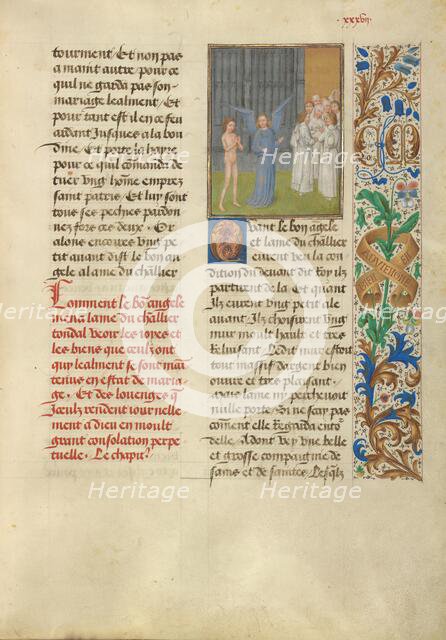 xxxvij
tourment / Et non pas
a maint autre / pour ce
quil ne garda pas son
mariage lealment / Et
pour tant est il en ce feu
ardant Jusques a la bou
dine / Et porte la haire
pour ce quil comanda de
tuer vng home emprez
saint patrice / Et luy sont
tous ses pechies pardon
nez fors ces deux · Or
alons encores vng pe
tit auant dist le bon an
gele a lame du chlr
Comment le bon angele
mena lame du chlr
tondal veoir les ioyes et
les biens que ceulz ont
quy lealment se sont mai
tenus en estat de maria
ge · Et des louenges q̄
Jceulz rendent iournelle
ment a dieu en moult
grant consolation perpe
tuelle · Le chapitre
Quant le bon āgele
et lame du chlr
eurent veu la con
dition du deuant dit roy ilz
partirent de la · Et quant
Ilz eurent vng petit ale
auant / Ilz choisirent vng
mur moult hault et tres
Reluisant / Ledit mur estoit
tout massif dargent bien
ouure et tres plaisant ·
Mais lame ny percheuoit
nulle porte / Si ne scay pas
coment elle Regarda entour
delle / Adont vey vne belle
et grosse compaignie de
sains et de saintes / Lesqlz